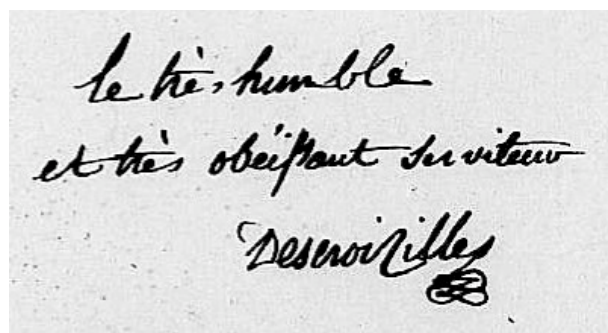 le très humble
et très obéissant serviteur
Descroizilles